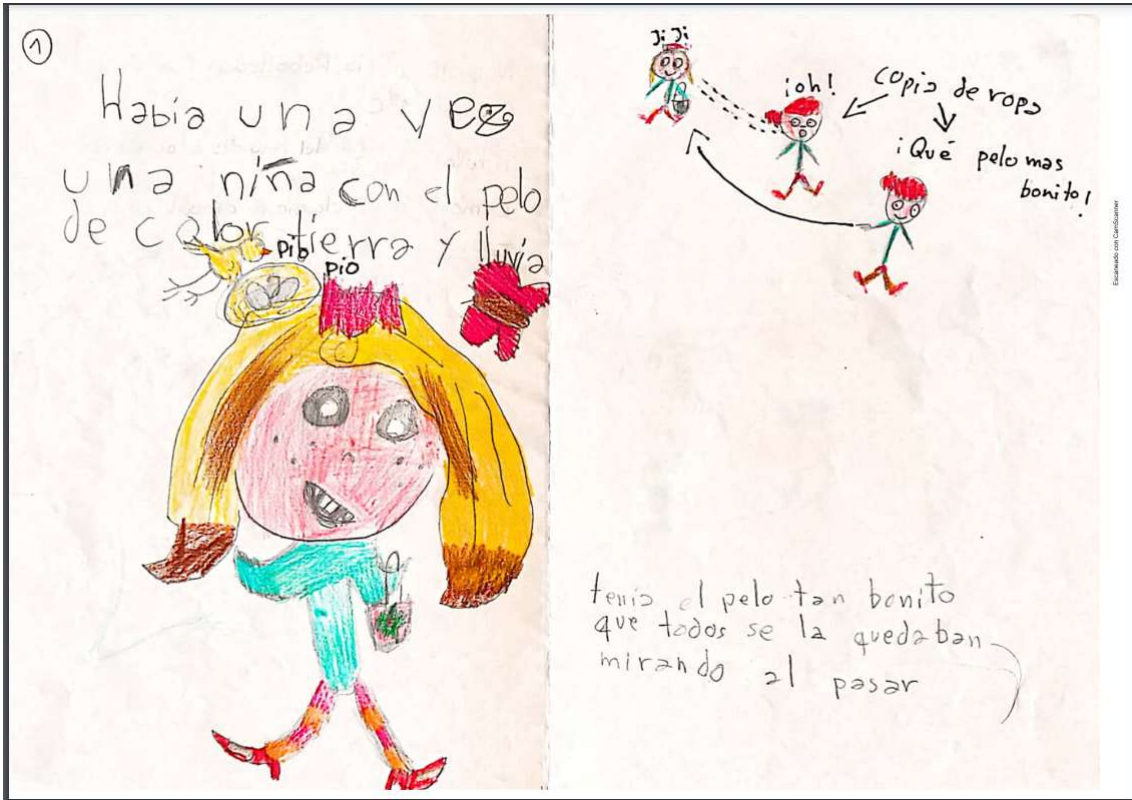 1
Había una vez
una niña con el pelo
de color tierra y lluvia
pio
pio
Ji Ji
¡oh!
copia de ropa
¡Qué pelo mas
bonito!
tenia el pelo tan bonito
que todos se la quedaban
mirando al pasar
Escaneado con CamScanner